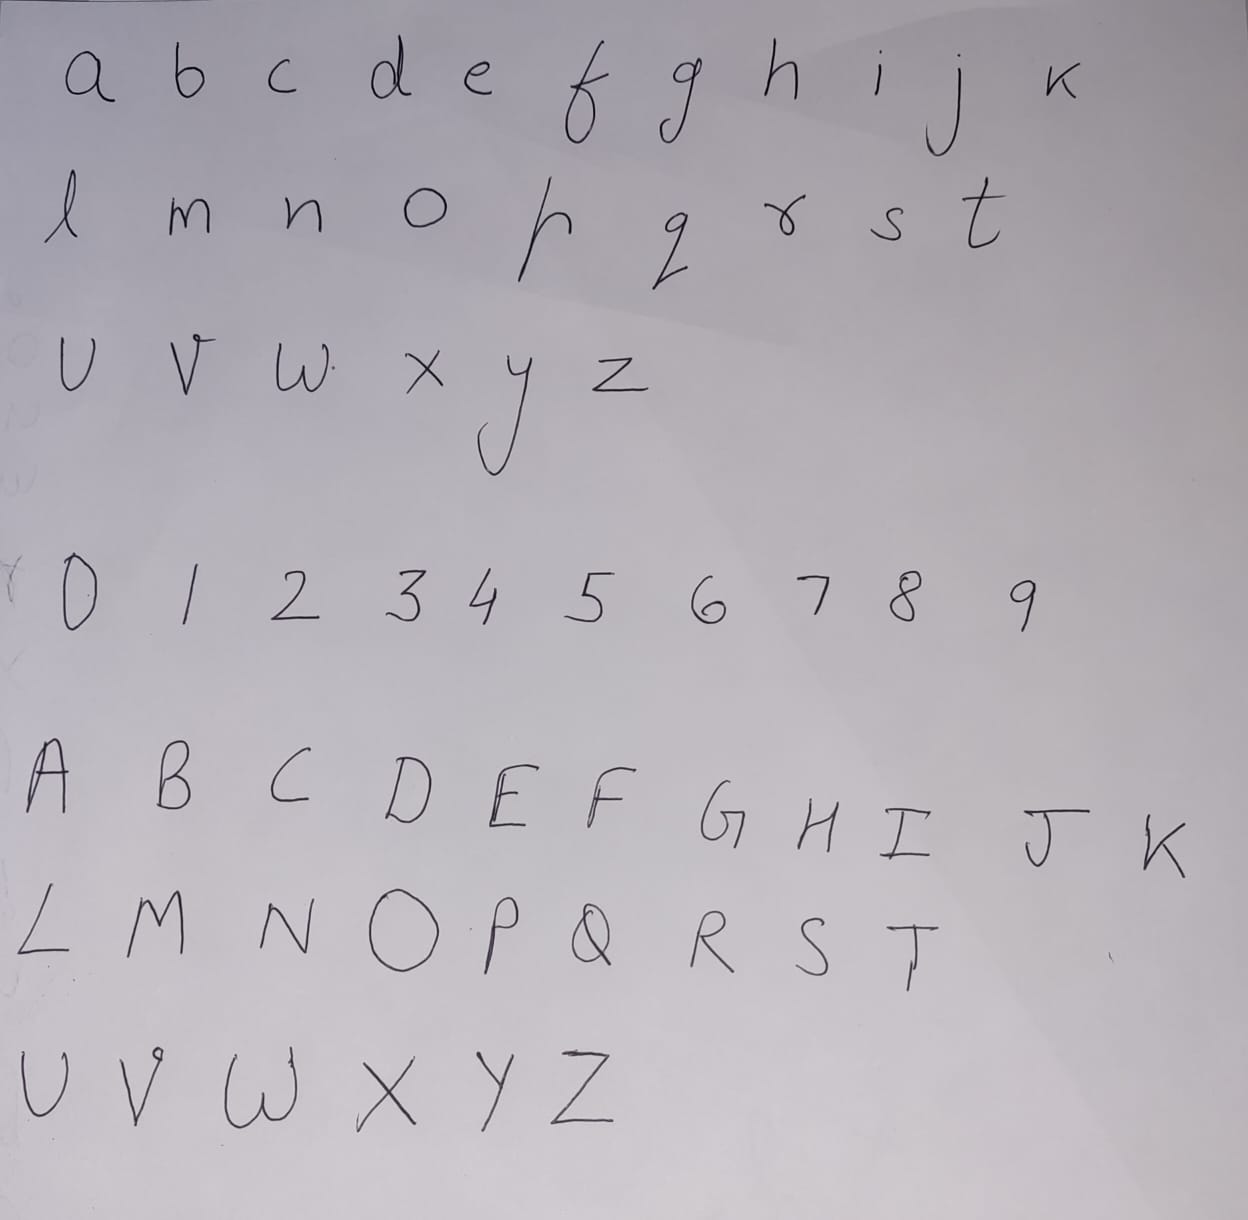 a b c d e f g h i j k
l m n o p q r s t
u v w x y z
0 1 2 3 4 5 6 7 8 9
A B C D E F G H I J K
L M N O P Q R S T
U V W X Y Z